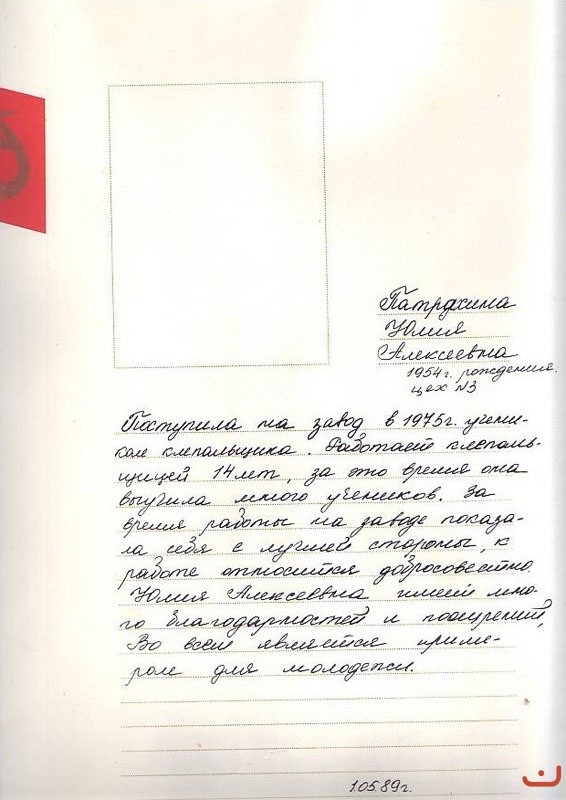 Патрахина
Юлия
Алексеевна
1954г. рождения.
цех №3
Поступила на завод в 1975г. учени-
ком клепальщика. Работает клепаль-
щицей 14 лет, за это время она
выучила много учеников. За
время работы на заводе показа-
ла себя с лучшей стороны, к
работе относится добросовестно.
Юлия Алексеевна имеет мно-
го благодарностей и поощрений,
Во всем является приме-
ром для молодежи.
1.05.89г.